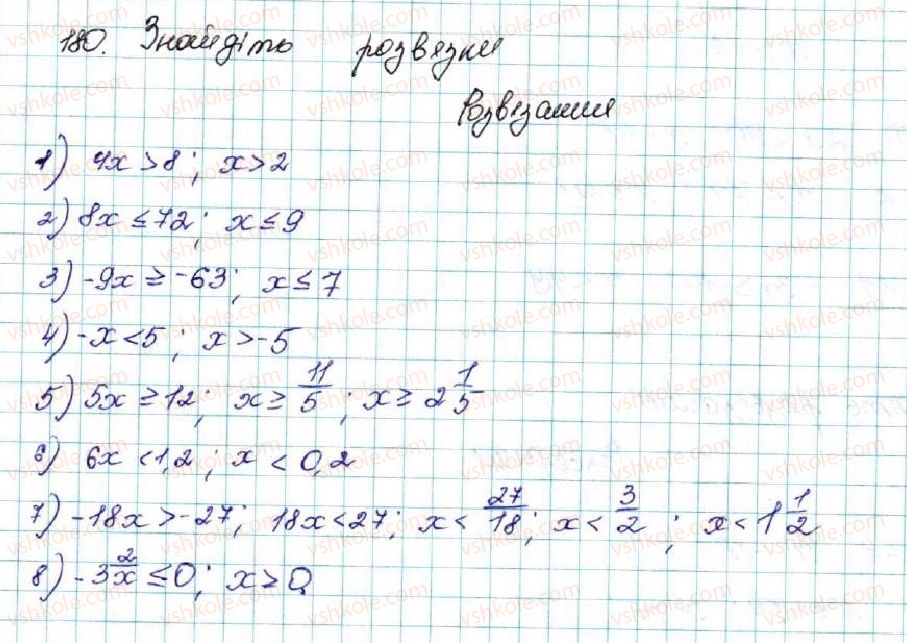 180. Знайдіть розвязки
Розвязання
1) 4x > 8; x > 2
2) 8x ≤ 72; x ≤ 9
3) -9x ≥ -63; x ≤ 7
4) -x < 5; x > -5
5) 5x ≥ 12; x ≥ 11/5; x ≥ 2 1/5
6) 6x < 1,2; x < 0,2
7) -18x > -27; 18x < 27; x < 27/18; x < 3/2; x < 1 1/2
8) -3 2/x ≤ 0; x ≥ 0